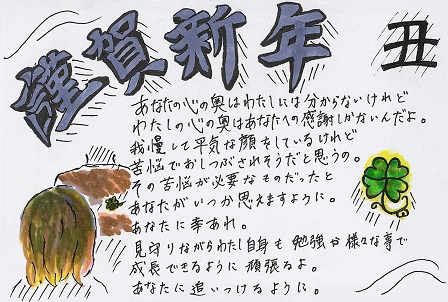 謹賀新年
丑
あなたの心の奥はわたしには分からないけれど
わたしの心の奥はあなたへの感謝しかないんだよ。
我慢して平気な顔をしているけれど
苦悩でおしつぶされそうだと思うの。
その苦悩が必要なものだったと
あなたがいつか思えますように。
あなたに幸あれ。
見守りながらわたし自身も勉強や様々な事で
成長できるように頑張るよ。
あなたに追いつけるように。